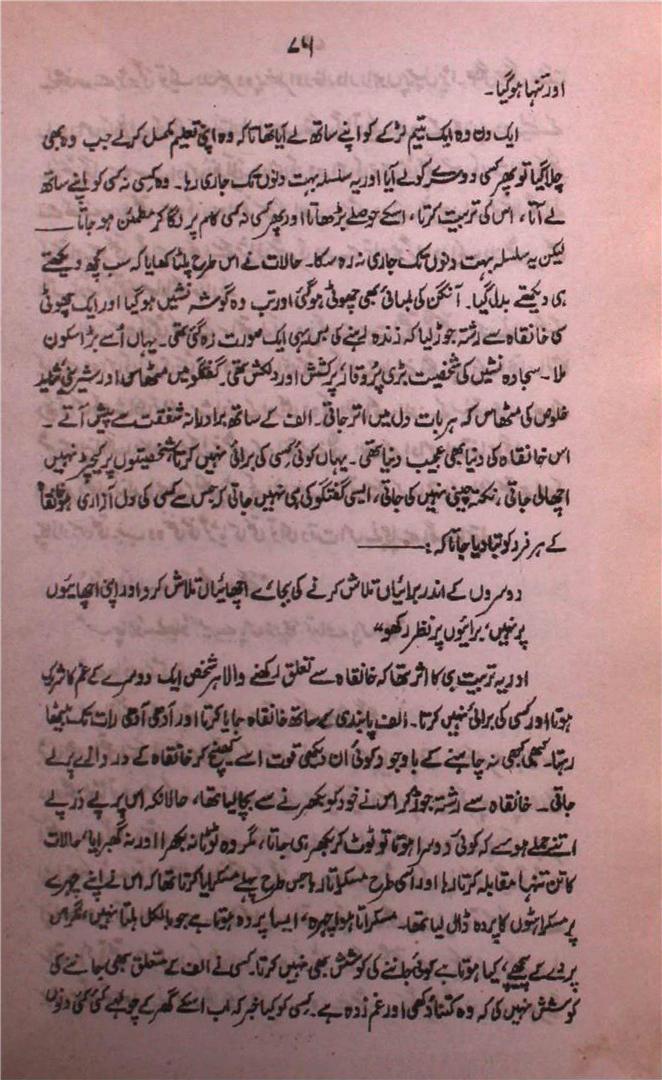 ۷۵
اور تنہا ہوگیا۔
ایک دن وہ ایک یتیم لڑکے کو اپنے ساتھ لے آیا تھا تاکہ وہ اپنی تعلیم مکمل کرلے جب وہ بھی
چلا گیا تو پھر کسی دوسرے کو لے آیا اور یہ سلسلہ بہت دنوں تک جاری رہا۔ وہ کسی نہ کسی کو اپنے ساتھ
لے آتا، اس کی تربیت کرتا، اسکے حوصلے بڑھاتا اور پھر کسی نہ کسی کام پر لگا کر مطمئن ہو جاتا ——
لیکن یہ سلسلہ بہت دنوں تک جاری نہ رہ سکا۔ حالات نے اس طرح پلٹا کھایا کہ سب کچھ دیکھتے
ہی دیکھتے بدل گیا۔ آنگن کی لمبائی بھی چھوٹی ہوگئی اور تب وہ گوشہ نشیں ہوگیا اور ایک چھوٹی
سی خانقاہ سے رشتہ جوڑ لیا کہ زندہ رہنے کی بس یہی ایک صورت رہ گئی تھی۔ یہاں اُسے بڑا سکون
ملا۔ سجادہ نشیں کی شخصیت بڑی پُروقار پُرکشش اور دلکش تھی۔ گفتگو میں مٹھاس اور شیرینی
خلوص کی مٹھاس کہ ہر بات دل میں اتر جاتی۔ الف کے ساتھ برادرانہ شفقت سے پیش آتے۔
اس خانقاہ کی دنیا بھی عجیب دنیا تھی۔ یہاں کوئی کسی کی برائی نہیں کرتا، شخصیتوں پر کیچڑ نہیں
اچھالی جاتی، نکتہ چینی نہیں کی جاتی، ایسی گفتگو کی ہی نہیں جاتی کہ جس سے کسی کی دل آزاری ہو خانقاہ
کے ہر فرد کو بتا دیا جاتا کہ: ——
دوسروں کے اندر برائیاں تلاش کرنے کی بجائے اچھائیاں تلاش کرو اور اپنی اچھائیوں
پر نہیں، برائیوں پر نظر رکھو"
اور یہ تربیت ہی کا اثر تھا کہ خانقاہ سے تعلق رکھنے والا ہر شخص ایک دوسرے کے غم کا شریک
ہوتا اور کسی کی برائی نہیں کرتا۔ الف پابندی کے ساتھ خانقاہ جایا کرتا اور آدھی آدھی رات تک بیٹھا
رہتا۔ کبھی کبھی نہ چاہنے کے باوجود کوئی ان دیکھی قوت اسے کھینچ کر خانقاہ کے دروازے پر لے
جاتی۔ خانقاہ سے رشتہ جوڑ کر اس نے خود کو بکھرنے سے بچا لیا تھا، حالانکہ اس پر پے در پے
اتنے حملے ہوئے کہ کوئی دوسرا ہوتا تو ٹوٹ کر بکھر ہی جاتا، مگر وہ ٹوٹا نہ بکھرا اور نہ گھبرایا، حالات
کا تن تنہا مقابلہ کرتا رہا اور اسی طرح مسکراتا رہا جس طرح پہلے مسکرایا کرتا تھا کہ اس نے اپنے چہرے
پر مسکراہٹوں کا پردہ ڈال لیا تھا۔ مسکراتا ہوا چہرہ، ایسا پردہ ہوتا ہے جو بالکل ہلتا نہیں، مگر اس
پردے کے پیچھے، کیا ہوتا ہے کوئی جاننے کی کوشش بھی نہیں کرتا۔ کسی نے الف کے متعلق بھی جاننے کی
کوشش نہیں کی کہ وہ کتنا دکھی اور غم زدہ ہے۔ کسی کو کیا خبر کہ اب اسکے گھر کے چولہے کئی کئی دنوں